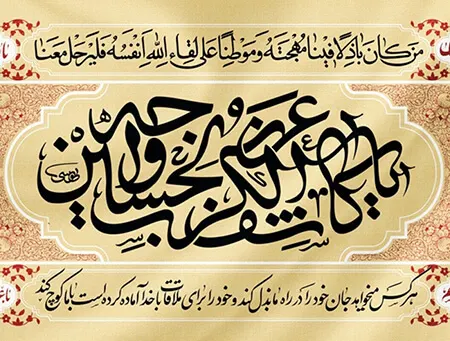 من كان باذلا فينا مهجته وموطنا على لقاء الله نفسه فليرحل معنا
يا كاشف الكرب عن وجه الحسين
هر کس میخواهد جان خود را در راه ما بذل کند و خود را برای ملاقات با خدا آماده کرده است با ما کوچ کند